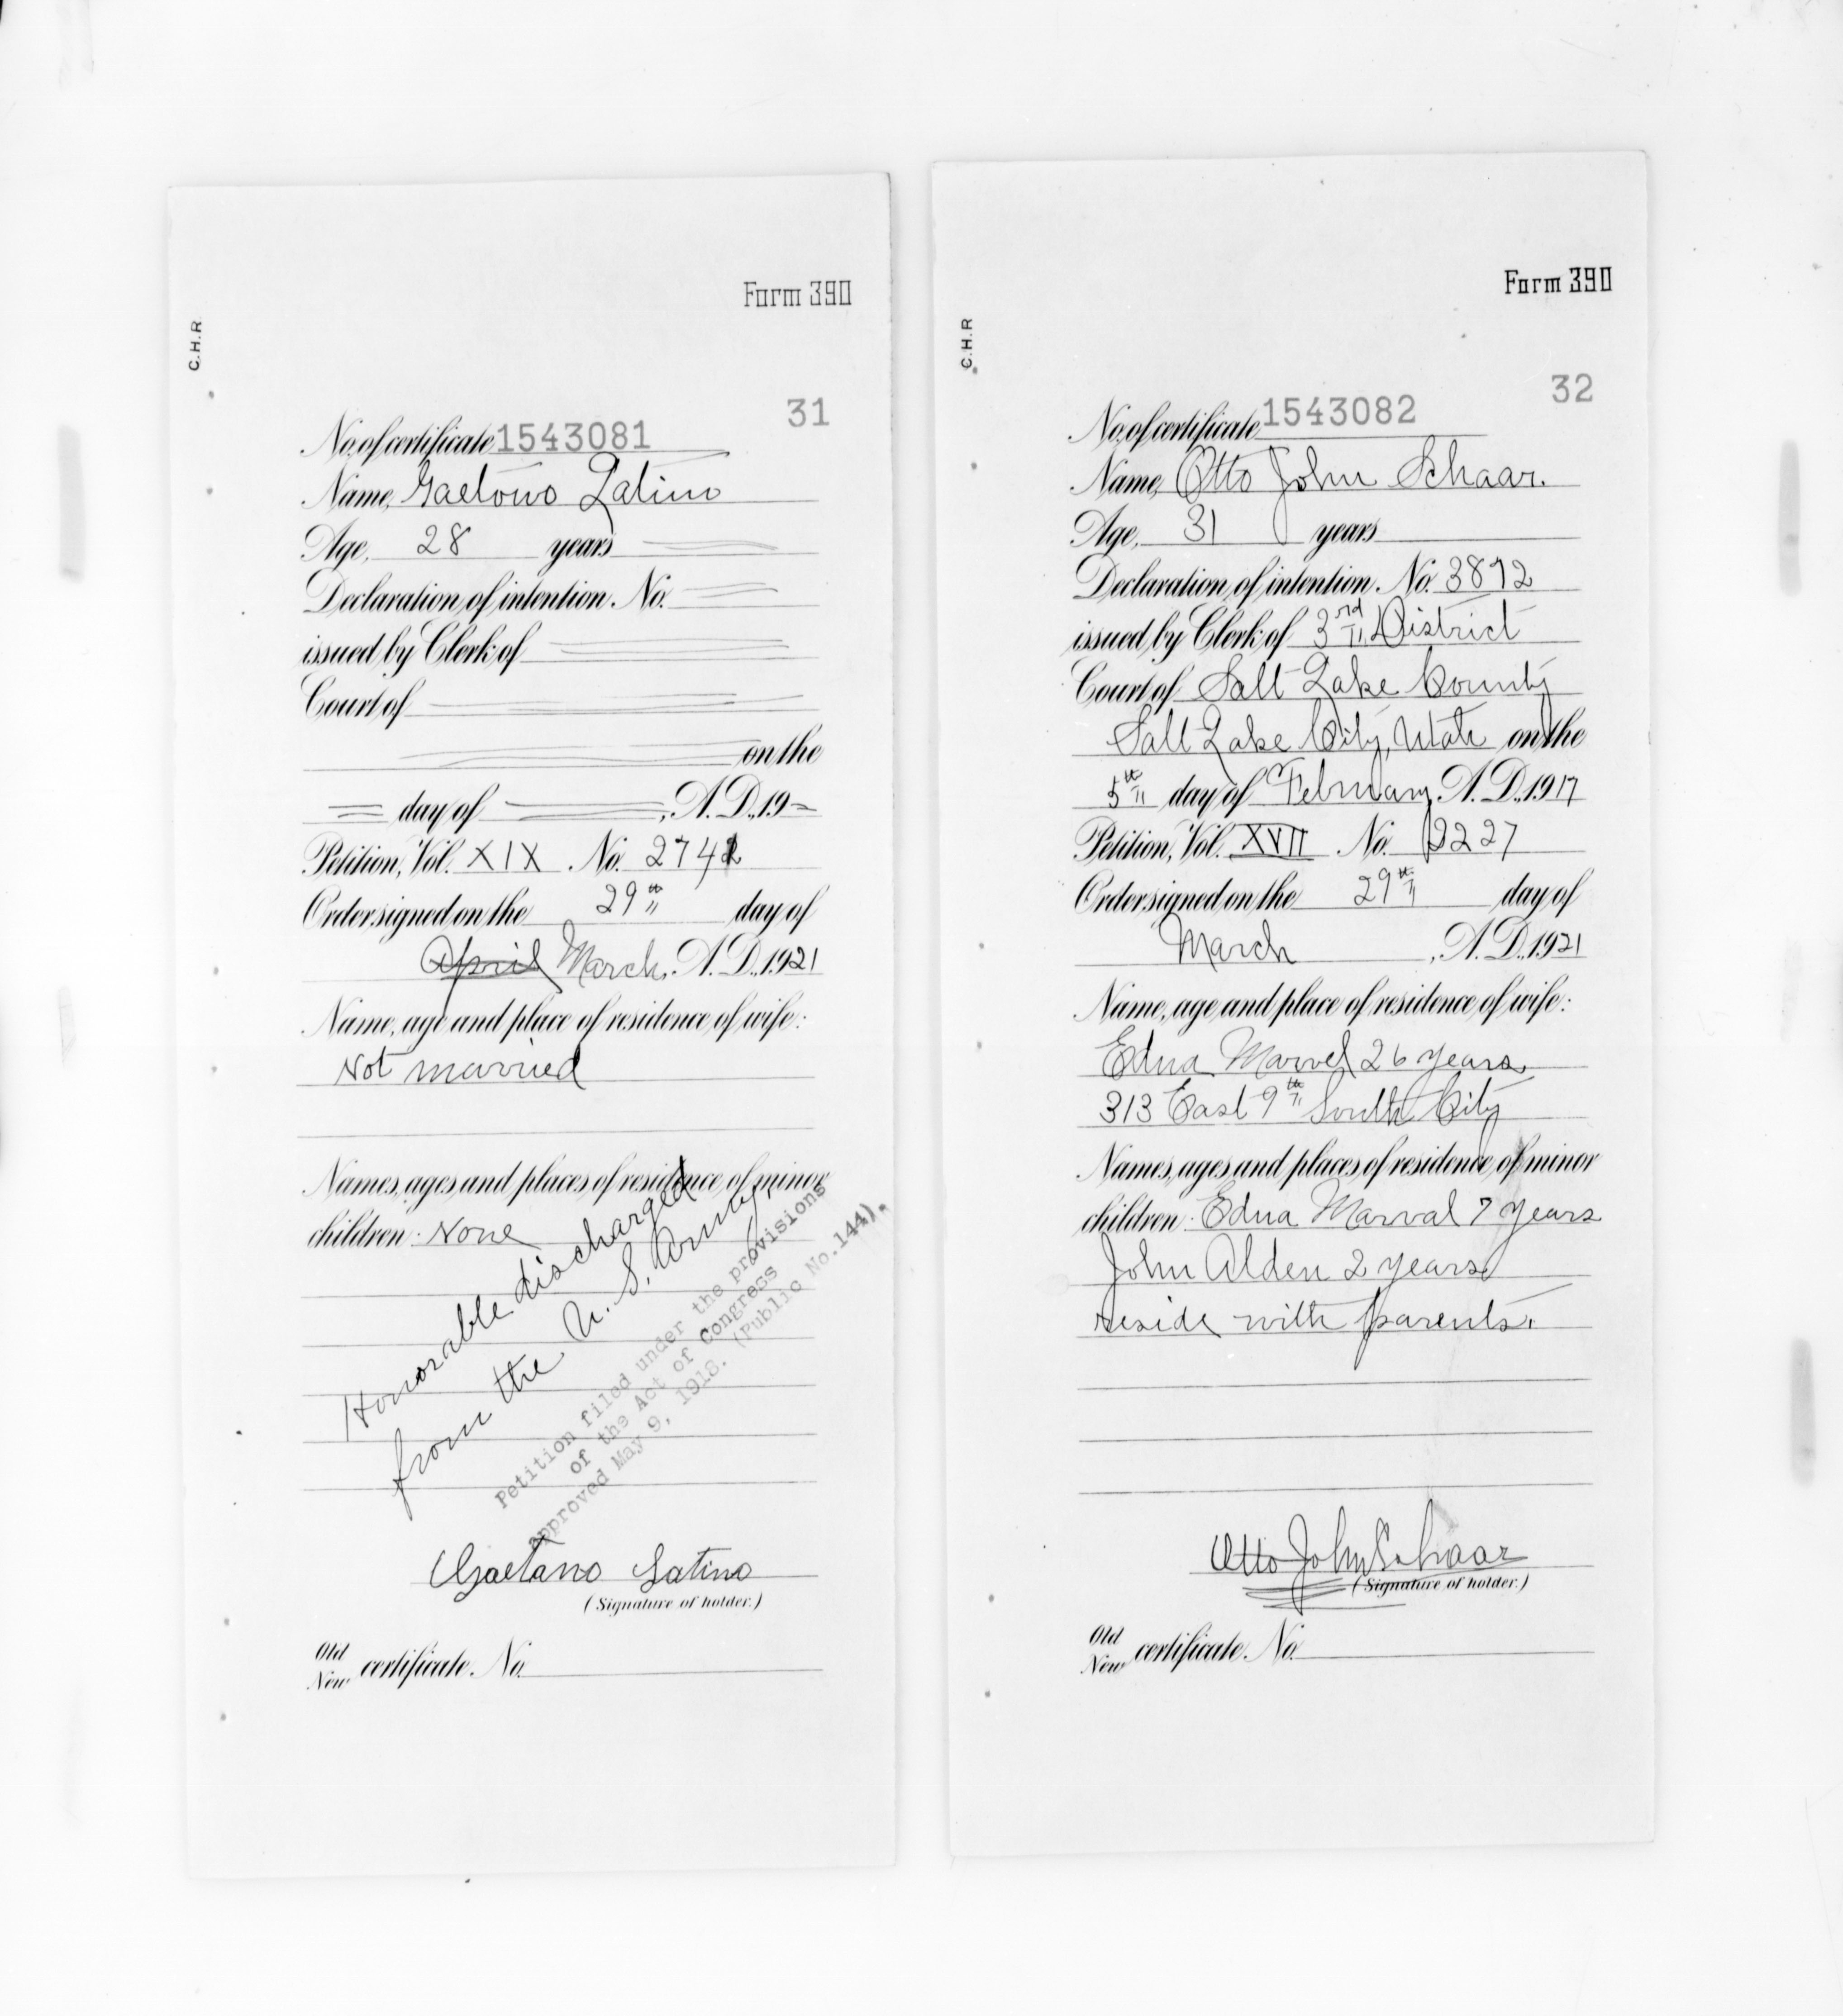 Form 390
C.H.R.
31
No. of certificate 1543081
Name, Gaetano Latino
Age, 28 years
Declaration of intention, No.
issued by Clerk of
Court of
on the
day of , A. D., 19
Petition, Vol. XIX No. 2742
Order signed on the 29th day of
April March, A. D., 1921
Name, age and place of residence of wife:
Not married
Names, ages and places of residence of minor
children: None
Honorable discharged
from the U. S. Army
Petition filed under the provisions
of the Act of Congress
approved May 9, 1918. (Public No.144).
Gaetano Latino
(Signature of holder.)
Old
New certificate, No.
Form 390
C.H.R
32
No. of certificate 1543082
Name, Otto John Schaar.
Age, 31 years
Declaration of intention, No. 3872
issued by Clerk of 3rd District
Court of Salt Lake County
Salt Lake City, Utah on the
5th day of February, A. D., 1917
Petition, Vol. XVII No. 2227
Order signed on the 29th day of
March, A. D., 1921
Name, age and place of residence of wife:
Edna Marvel 26 years
313 East 9th South City
Names, ages and places of residence of minor
children: Edna Marval 7 years
John Alden 2 years
reside with parents.
Otto John Schaar
(Signature of holder.)
Old
New certificate, No.